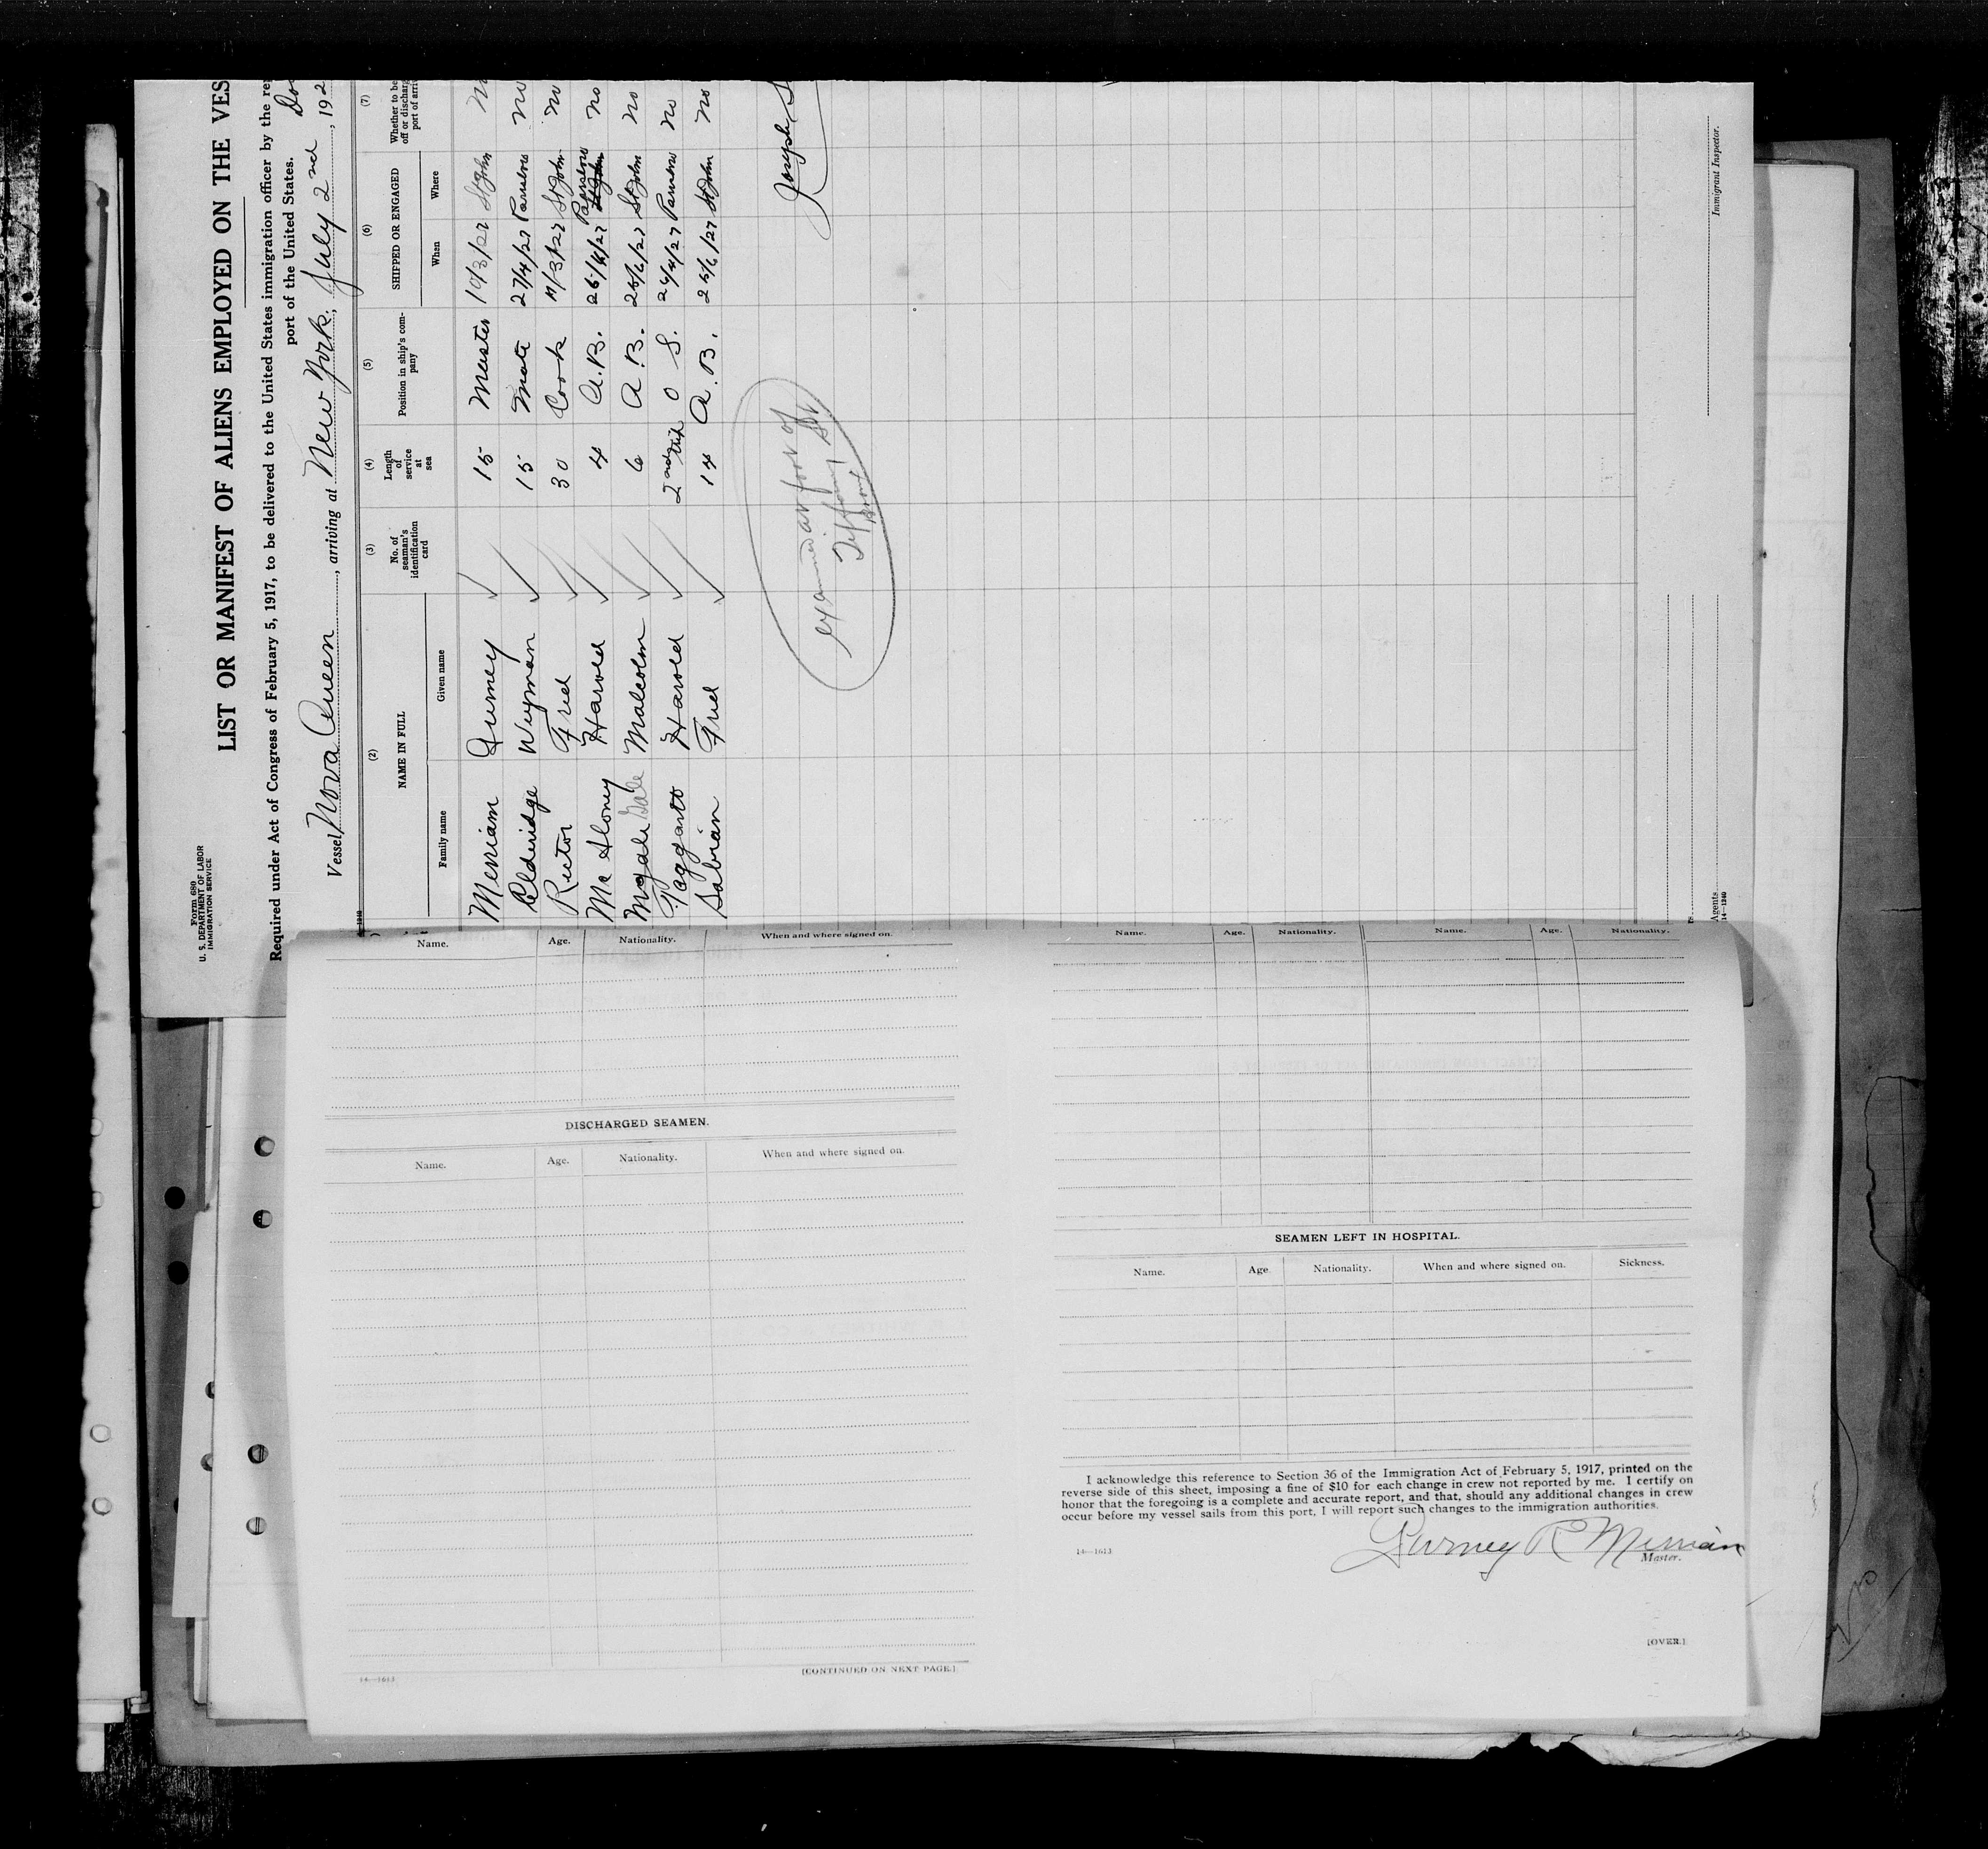 Form 680
U. S. DEPARTMENT OF LABOR
IMMIGRATION SERVICE
LIST OR MANIFEST OF ALIENS EMPLOYED ON THE VES
Required under Act of Congress of February 5, 1917, to be delivered to the United States immigration officer by the re
port of the United States.
Vessel Nova Queen, arriving at New York, July 2nd, 192
(2) (3) (4) (5) (6) (7)
NAME IN FULL No. of seaman's identification card Length of service at sea Position in ship's company SHIPPED OR ENGAGED Whether to be off or discharg port of arriv
Family name Given name When Where
Merriam Gurney 15 Master 10/3/27 St John No
Eldridge Wyman 15 Mate 27/4/27 Parrsboro No
Rector Fred 30 Cook 11/3/27 St John No
Mc Aloney Harold 4 A.B. 26/4/27 Parrsboro St John No
Mcgale Gale Malcolm 6 A.B. 25/6/27 St John No
Taggart Harold 2nd trip O S. 26/4/27 Parrsboro No
Sabian Fred 14 A.B. 25/6/27 St John No
Joseph
examined at foot of
Tiffany St
Bronx
Immigrant Inspector.
Agents
14—1240
Name. Age. Nationality. When and where signed on.
DISCHARGED SEAMEN.
Name. Age. Nationality. When and where signed on.
14—1613
[CONTINUED ON NEXT PAGE.]
Name. Age. Nationality. Name. Age. Nationality.
SEAMEN LEFT IN HOSPITAL.
Name. Age. Nationality. When and where signed on. Sickness.
I acknowledge this reference to Section 36 of the Immigration Act of February 5, 1917, printed on the
reverse side of this sheet, imposing a fine of $10 for each change in crew not reported by me. I certify on
honor that the foregoing is a complete and accurate report, and that, should any additional changes in crew
occur before my vessel sails from this port, I will report such changes to the immigration authorities.
Gurney R Merriam
14—1613
Master.
[OVER.]